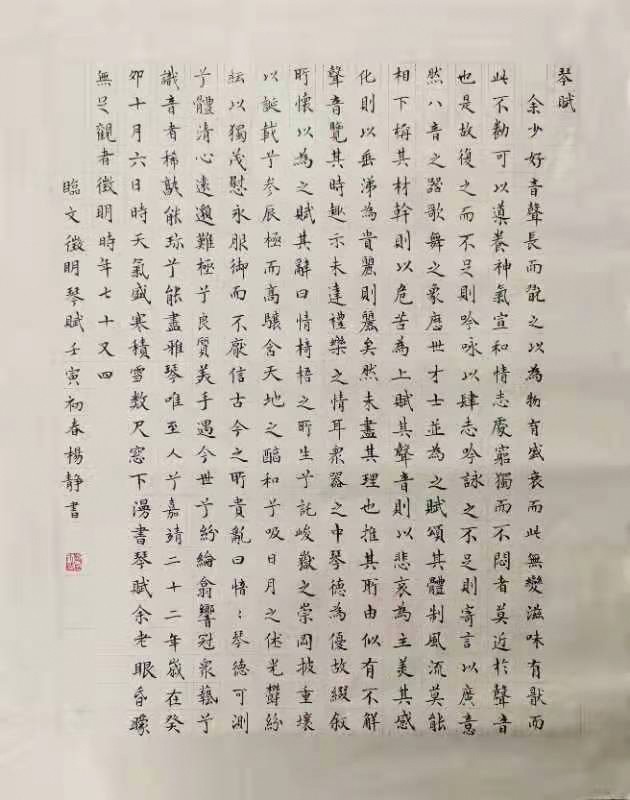 琴賦
余少好音聲長而翫之以為物有盛衰而此無變滋味有猒而
此不勌可以導養神氣宣和情志處窮獨而不悶者莫近於聲音
也是故復之而不足則吟咏以肆志吟詠之不足則寄言以廣意
然八音之器歌舞之象歷世才士並為之賦頌其體制風流莫能
相下稱其材幹則以危苦為上賦其聲音則以悲哀為主美其感
化則以垂涕為貴麗則麗矣然未盡其理也推其所由似有不解
聲音覽其時趣示未達禮樂之情耳眾器之中琴德為優故綴叙
所懷以為之賦其辭曰情椅梧之所生兮託峻嶽之崇岡披重壤
以誕載兮參辰極而高驤含天地之醇和兮吸日月之休光鬱紛
紜以獨茂慰永服御而不厭信古今之所貴亂曰愔〻琴德可測
兮體清心遠邈難極兮良質美手遇今世兮紛綸翕響冠眾藝兮
識音者稀孰能珍兮能盡雅琴唯至人兮嘉靖二十二年歲在癸
卯十月六日時天氣盛寒積雪数尺窓下漫書琴賦余老眼昏矇
無足觀者徵明時年七十又四
臨文徵明琴賦壬寅初春楊靜書